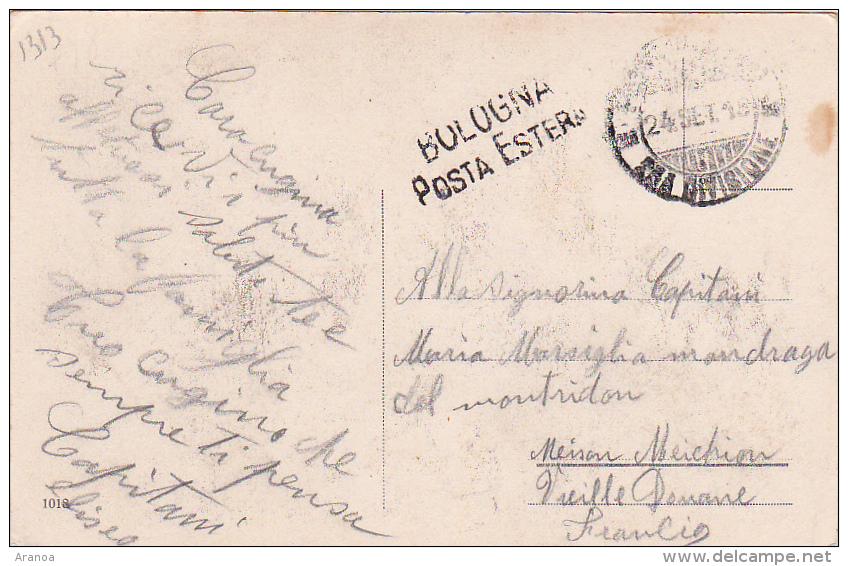 1313
Cara cugina
ricevi i piu
affetuosi saluti a te e
tutta la famiglia
tuo cugino che
sempre ti pensa
Capitani
Eliseo
1018
BOLOGNA
POSTA ESTERA
24 SET. 18
DIVISIONE
Alla Signorina Capitani
Maria Marsiglia mondraga
del montridon
Meison Meichion
Vieille Douane
Francia
Aranoa
www.delcampe.net